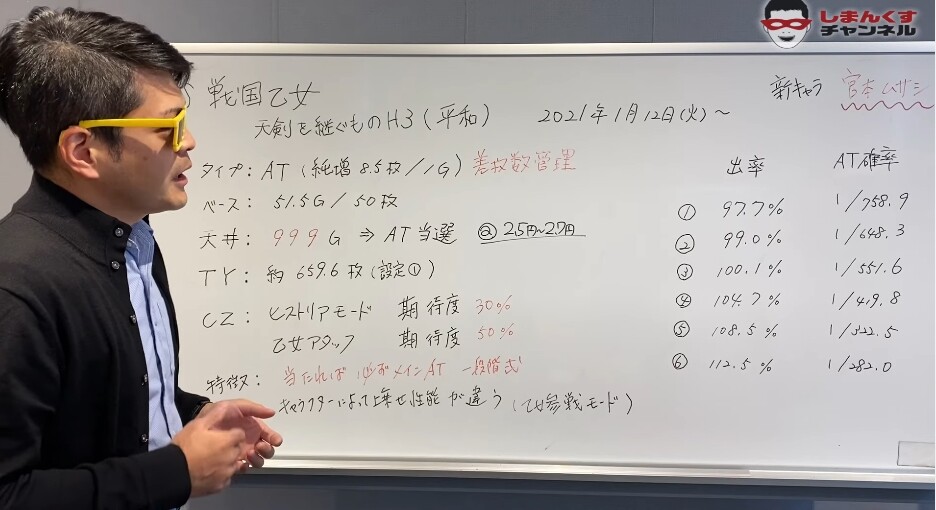 しまんくす
チャンネル
戦国乙女
天剣を継ぐもの H3 (平和) 2021年1月12日(火)～
新キャラ 宮本ムサシ
タイプ: AT (純増 8.5枚/1G) 差枚数管理
ベース: 51.5G / 50枚
天井: 999G ⇒ AT当選 @2.5円~2.7円
TY: 約659.6枚 (設定①)
CZ: ヒストリアモード 期待度 30%
乙女アタック 期待度 50%
特徴: 当たれば 必ずメインAT 一段階式
キャラクターによって上乗せ性能が違う (乙女参戦モード)
出率 AT確率
① 97.7% 1/758.9
② 99.0% 1/648.3
③ 100.1% 1/551.6
④ 104.7% 1/419.8
⑤ 108.5% 1/322.5
⑥ 112.5% 1/282.0